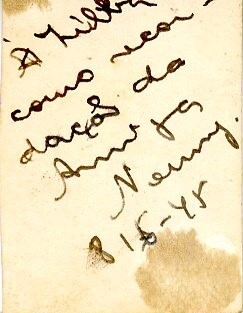 À Libby
como recor-
dação da
Amiga
Nenny.
8 15-48